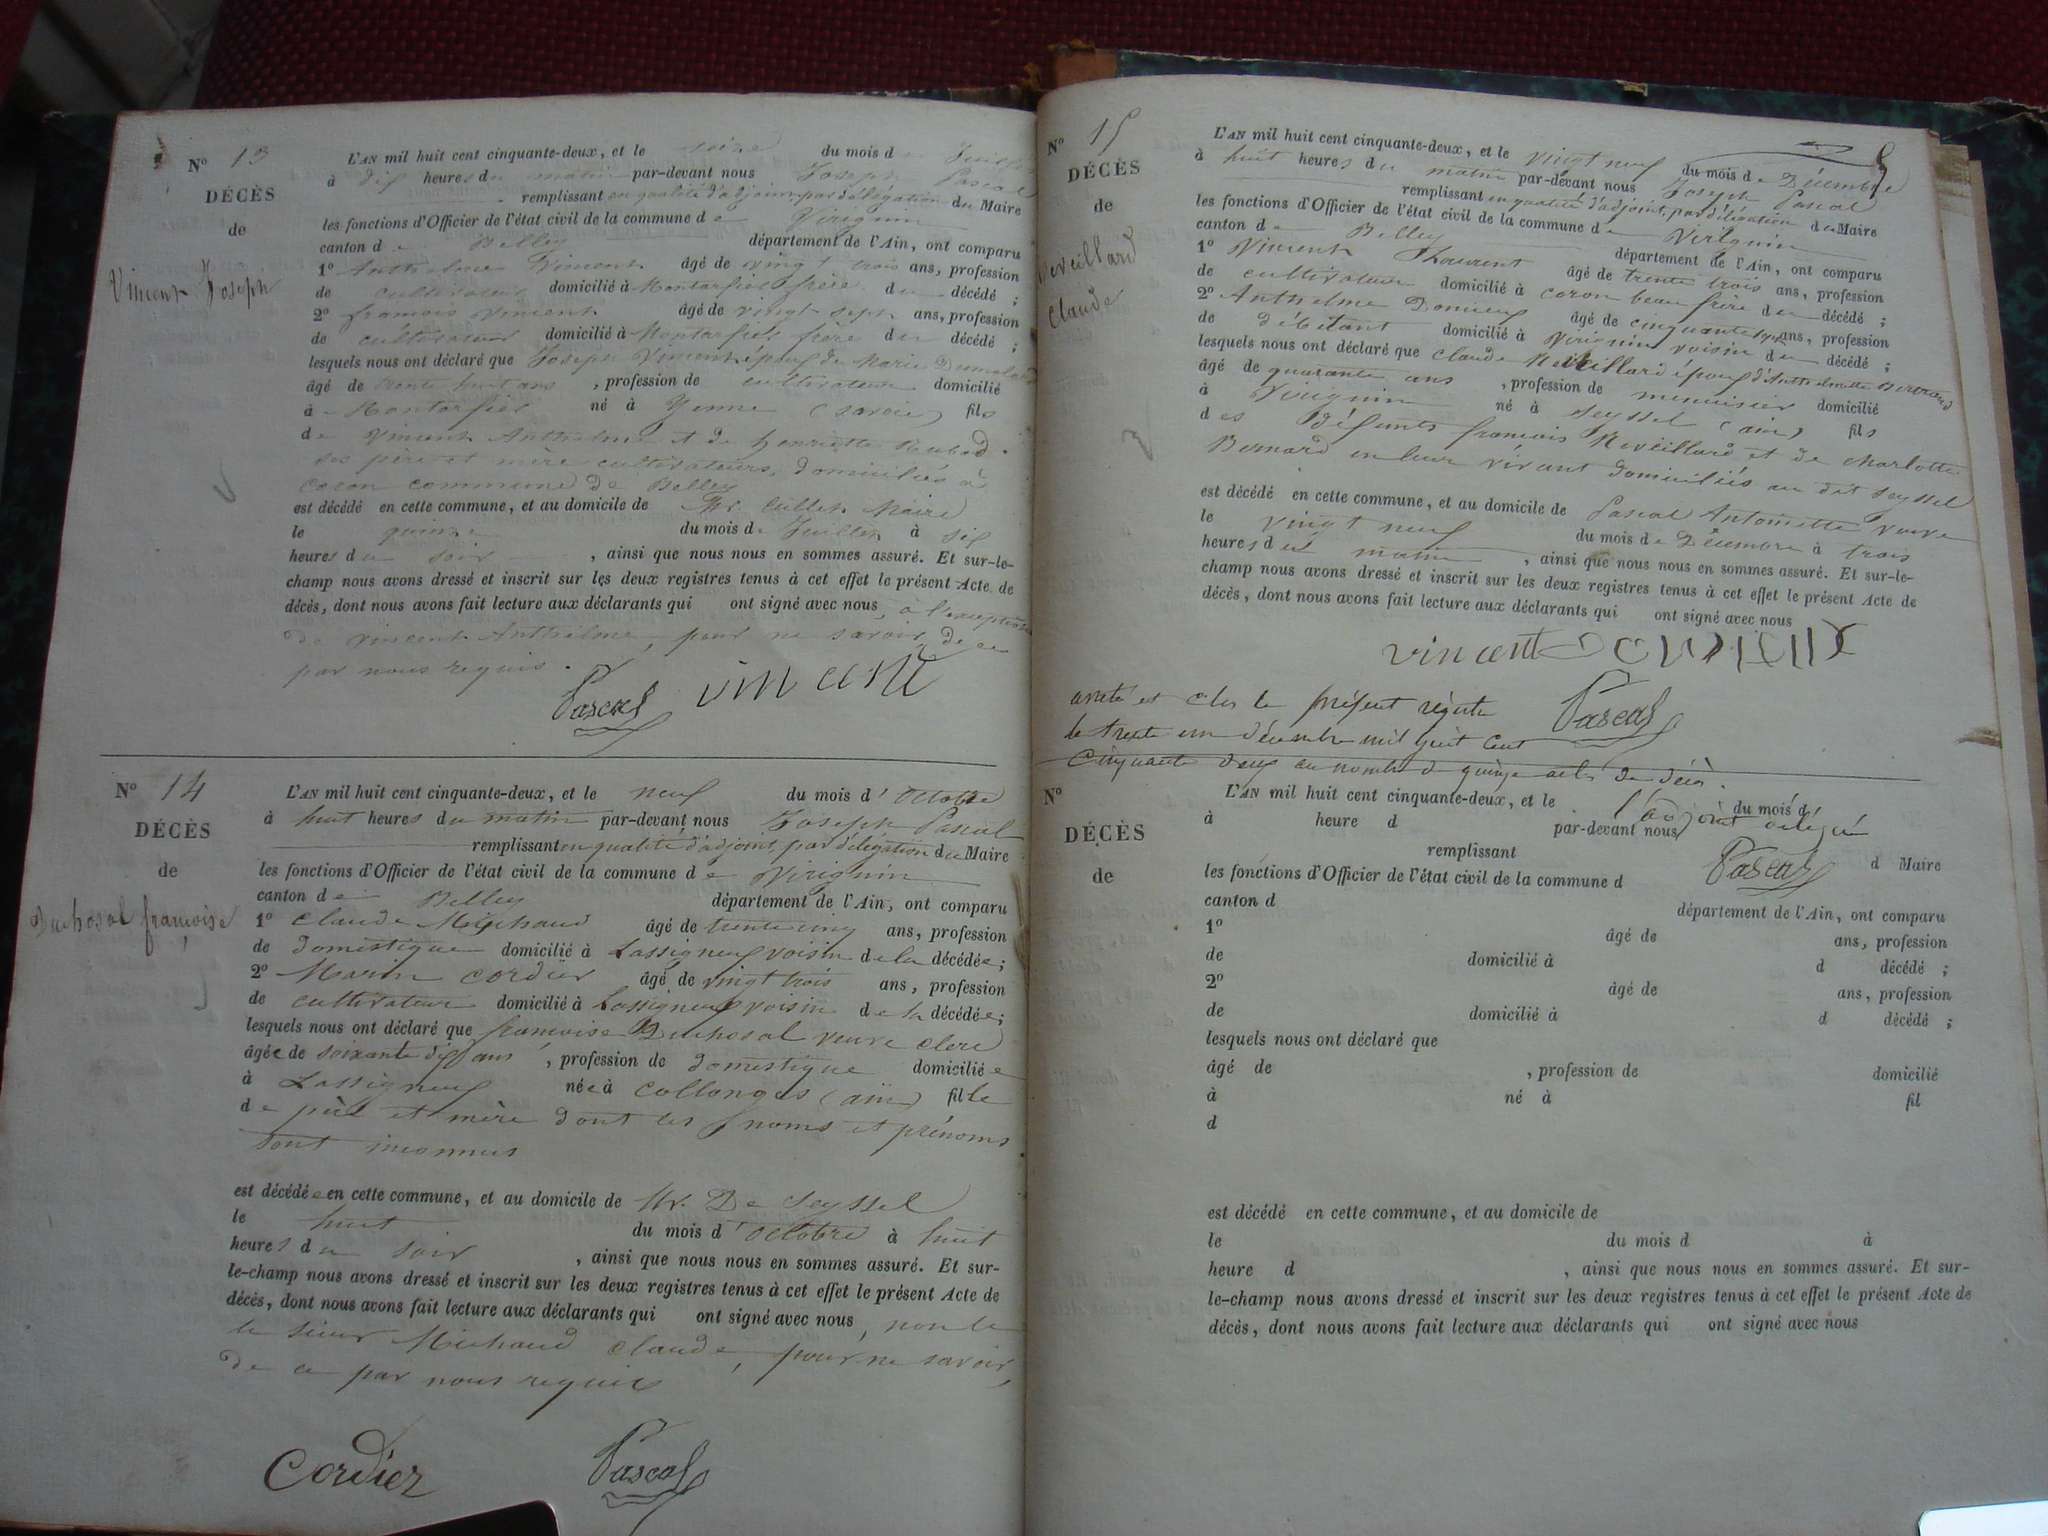 N° 13
DÉCÈS
de
Vincent Joseph
L'AN mil huit cent cinquante-deux, et le seize du mois d Juillet
à dix heures du matin par-devant nous Joseph Pascal
remplissant en qualité d'adjoint, par délégation du Maire
les fonctions d'Officier de l'état civil de la commune de Virignin
canton de Belley département de l'Ain, ont comparu
1° Anthelme Vincent âgé de vingt trois ans, profession
de cultivateur domicilié à Montarfier frère du décédé ;
2° françois Vincent âgé de vingt sept ans, profession
de cultivateur domicilié à Montarfier frère du décédé ;
lesquels nous ont déclaré que Joseph Vincent époux de Marie
âgé de trente huit ans, profession de cultivateur domicilié
à Montarfier né à Yenne (Savoie) fils
de Vincent Anthelme et de henriette
ses père et mère cultivateurs, domiciliés à
coron commune de Belley
est décédé en cette commune, et au domicile de Mr. Cullet Maire
le quinze du mois de Juillet à six
heures du soir, ainsi que nous nous en sommes assuré. Et sur-le-
champ nous avons dressé et inscrit sur les deux registres tenus à cet effet le présent Acte de
décès, dont nous avons fait lecture aux déclarants qui ont signé avec nous, à l'exception
de Vincent Anthelme, pour ne savoir, de ce
par nous requis.
Pascal vincent
N° 14
DÉCÈS
de
Duchosal françoise
L'AN mil huit cent cinquante-deux, et le neuf du mois d'octobre
à huit heures du matin par-devant nous Joseph Pascal
remplissant en qualité d'adjoint, par délégation du Maire
les fonctions d'Officier de l'état civil de la commune de Virignin
canton de Belley département de l'Ain, ont comparu
1° Claude Michaud âgé de trente cinq ans, profession
de domestique domicilié à Lassigneux voisin de la décédée;
2° Marin Cordier âgé de vingt trois ans, profession
de cultivateur domicilié à Lassigneux voisin de la décédée;
lesquels nous ont déclaré que francoise Duchosal veuve clerc
âgée de soixante dix ans, profession de domestique domiciliée
à Lassigneux née à Collonges (ain) fille
de père et mère dont les noms et prénoms
sont inconnus
est décédée en cette commune, et au domicile de Mr. De Seyssel
le huit du mois d'octobre à huit
heures du soir, ainsi que nous nous en sommes assuré. Et sur-
le-champ nous avons dressé et inscrit sur les deux registres tenus à cet effet le présent Acte de
décès, dont nous avons fait lecture aux déclarants qui ont signé avec nous, non le
le sieur Michaud Claude, pour ne savoir,
de ce par nous requis
Cordier Pascal
N° 15
DÉCÈS
de
Reveillard
Claude
L'AN mil huit cent cinquante-deux, et le vingt neuf du mois de Décembre
à huit heures du matin par-devant nous Joseph Pascal
remplissant en qualité d'adjoint, par délégation du Maire
les fonctions d'Officier de l'état civil de la commune de Virignin
canton de Belley département de l'Ain, ont comparu
1° Vincent âgé de trente trois ans, profession
de cultivateur domicilié à coron beau frère du décédé ;
2° Anthelme Domieux âgé de cinquante ans, profession
de débitant domicilié à Virignin voisin du décédé ;
lesquels nous ont déclaré que Claude Reveillard époux d'Anthelmette Bertrand
âgé de quarante ans, profession de menuisier domicilié
à Virignin né à Seyssel (ain) fils
des défunts françois Reveillard et de charlotte
Bernard en leur vivant domiciliés au dit Seyssel
est décédé en cette commune, et au domicile de Pascal Antoinette veuve
le vingt neuf du mois de Décembre à trois
heures du matin, ainsi que nous nous en sommes assuré. Et sur-le-
champ nous avons dressé et inscrit sur les deux registres tenus à cet effet le présent Acte de
décès, dont nous avons fait lecture aux déclarants qui ont signé avec nous
vincent Domieux
Pascal
arrêté et clos le présent registre
le trente un décembre mil huit cent
cinquante deux au nombre de quinze actes de décès.
l'adjoint délégué
Pascal
N°
DÉCÈS
de
L'AN mil huit cent cinquante-deux, et le du mois d
à heure d par-devant nous
remplissant d Maire
les fonctions d'Officier de l'état civil de la commune d
canton d département de l'Ain, ont comparu
1° âgé de ans, profession
de domicilié à d décédé ;
2° âgé de ans, profession
de domicilié à d décédé ;
lesquels nous ont déclaré que
âgé de , profession de domicilié
à né à fil
d
est décédé en cette commune, et au domicile de
le du mois d à
heure d , ainsi que nous nous en sommes assuré. Et sur-
le-champ nous avons dressé et inscrit sur les deux registres tenus à cet effet le présent Acte de
décès, dont nous avons fait lecture aux déclarants qui ont signé avec nous